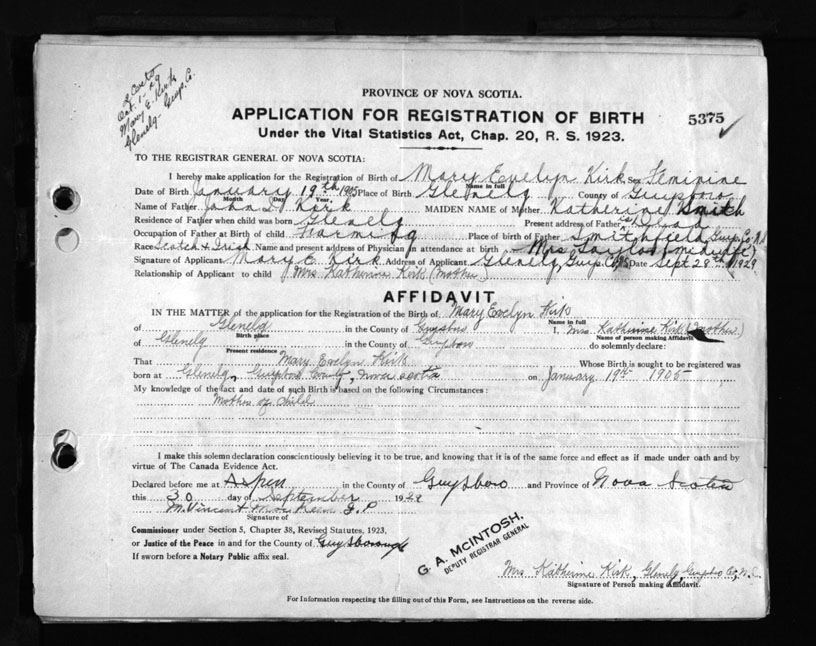 Oct. 1-29
Mary E. Kirk
Glenelg. Guys. Co.
PROVINCE OF NOVA SCOTIA.
APPLICATION FOR REGISTRATION OF BIRTH
5375
Under the Vital Statistics Act, Chap. 20, R. S. 1923.
TO THE REGISTRAR GENERAL OF NOVA SCOTIA:
I hereby make application for the Registration of Birth of Mary Evelyn Kirk Sex Feminine
Name in full
Date of Birth January 19th 1905 Place of Birth Glenelg County of Guysboro
Month Day Year
Name of Father John D Kirk MAIDEN NAME of Mother Katherine Smith
Residence of Father when child was born Glenelg Present address of Father Dead
Occupation of Father at Birth of child Farming Place of birth of Father Smithfield Guys. Co. N.S
Race Scotch & Irish Name and present address of Physician in attendance at birth Mrs. Taylor (midwife)
Signature of Applicant Mary E. Kirk Address of Applicant Glenelg, Guys. Co. N.S Date Sept 28th 1929
Relationship of Applicant to child Mrs Katherine Kirk (mother)
AFFIDAVIT
IN THE MATTER of the application for the Registration of the Birth of Mary Evelyn Kirk
Name in full
of Glenelg in the County of Guysboro I, Mrs. Katherine Kirk (mother)
Birth place Name of person making Affidavit
of Glenelg in the County of Guysboro do solemnly declare:
Present residence
That Mary Evelyn Kirk Whose Birth is sought to be registered was
born at Glenelg, Guysboro County, Nova Scotia on January 19th 1905
My knowledge of the fact and date of such Birth is based on the following Circumstances:
Mother of child
I make this solemn declaration conscientiously believing it to be true, and knowing that it is of the same force and effect as if made under oath and by
virtue of The Canada Evidence Act.
Declared before me at Aspen in the County of Guysboro and Province of Nova Scotia
this 30 day of September 1929
M. Vincent J. P
Signature of
Commissioner under Section 5, Chapter 38, Revised Statutes, 1923,
or Justice of the Peace in and for the County of Guysborough
If sworn before a Notary Public affix seal.
G. A. McINTOSH,
DEPUTY REGISTRAR GENERAL
Mrs. Katherine Kirk, Glenelg, Guysboro Co, N.S.
Signature of Person making Affidavit.
For Information respecting the filling out of this Form, see Instructions on the reverse side.